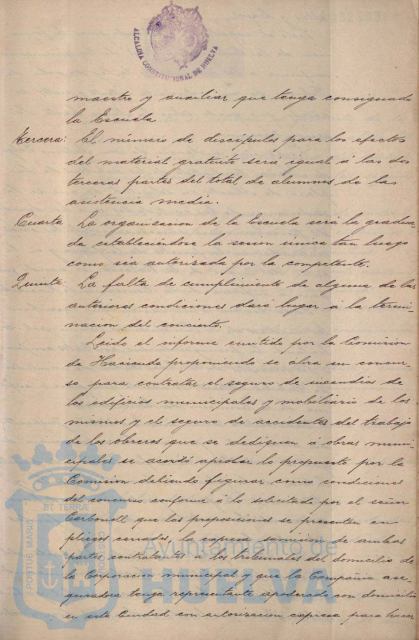 ALCALDIA CONSTITUCIONAL DE HUELVA
maestro y auxiliar que tenga consignado
la Escuela
Tercera: El número de discípulos para los efectos
del material gratuito será igual á las dos
terceras partes del total de alumnos de las
asistencia media.
Cuarta La organizacion de la Escuela será la gradua
da estableciéndose la sesion única tan luego
como sea autorizada por la competente.
Quinta La falta de cumplimiento de alguna de las
anteriores condiciones dará lugar á la termi
nacion del concierto.
Leido el informe emitido por la Comision
de Hacienda proponiendo se abra un concur
so para contratar el seguro de incendios de
los edificios municipales y mobiliario de los
mismos y el seguro de accidentes del trabajo
de los obreros que se dediquen á obras muni
cipales se acordó aprobar lo propuesto por la
Comision debiendo figurar como condiciones
del concurso conforme á lo solicitado por el señor
Carbonell que las proposiciones se presenten en
pliegos cerrados, la expresa sumision de ambas
partes contratantes á los tribunales del domicilio de
la Corporacion municipal y que la Compañia ase
guradora tenga representante apoderado con domicilio
en esta Ciudad con autorizacion expresa para
PORTUS MARIS ET TERRÆ
Ayuntamiento de
HUELVA